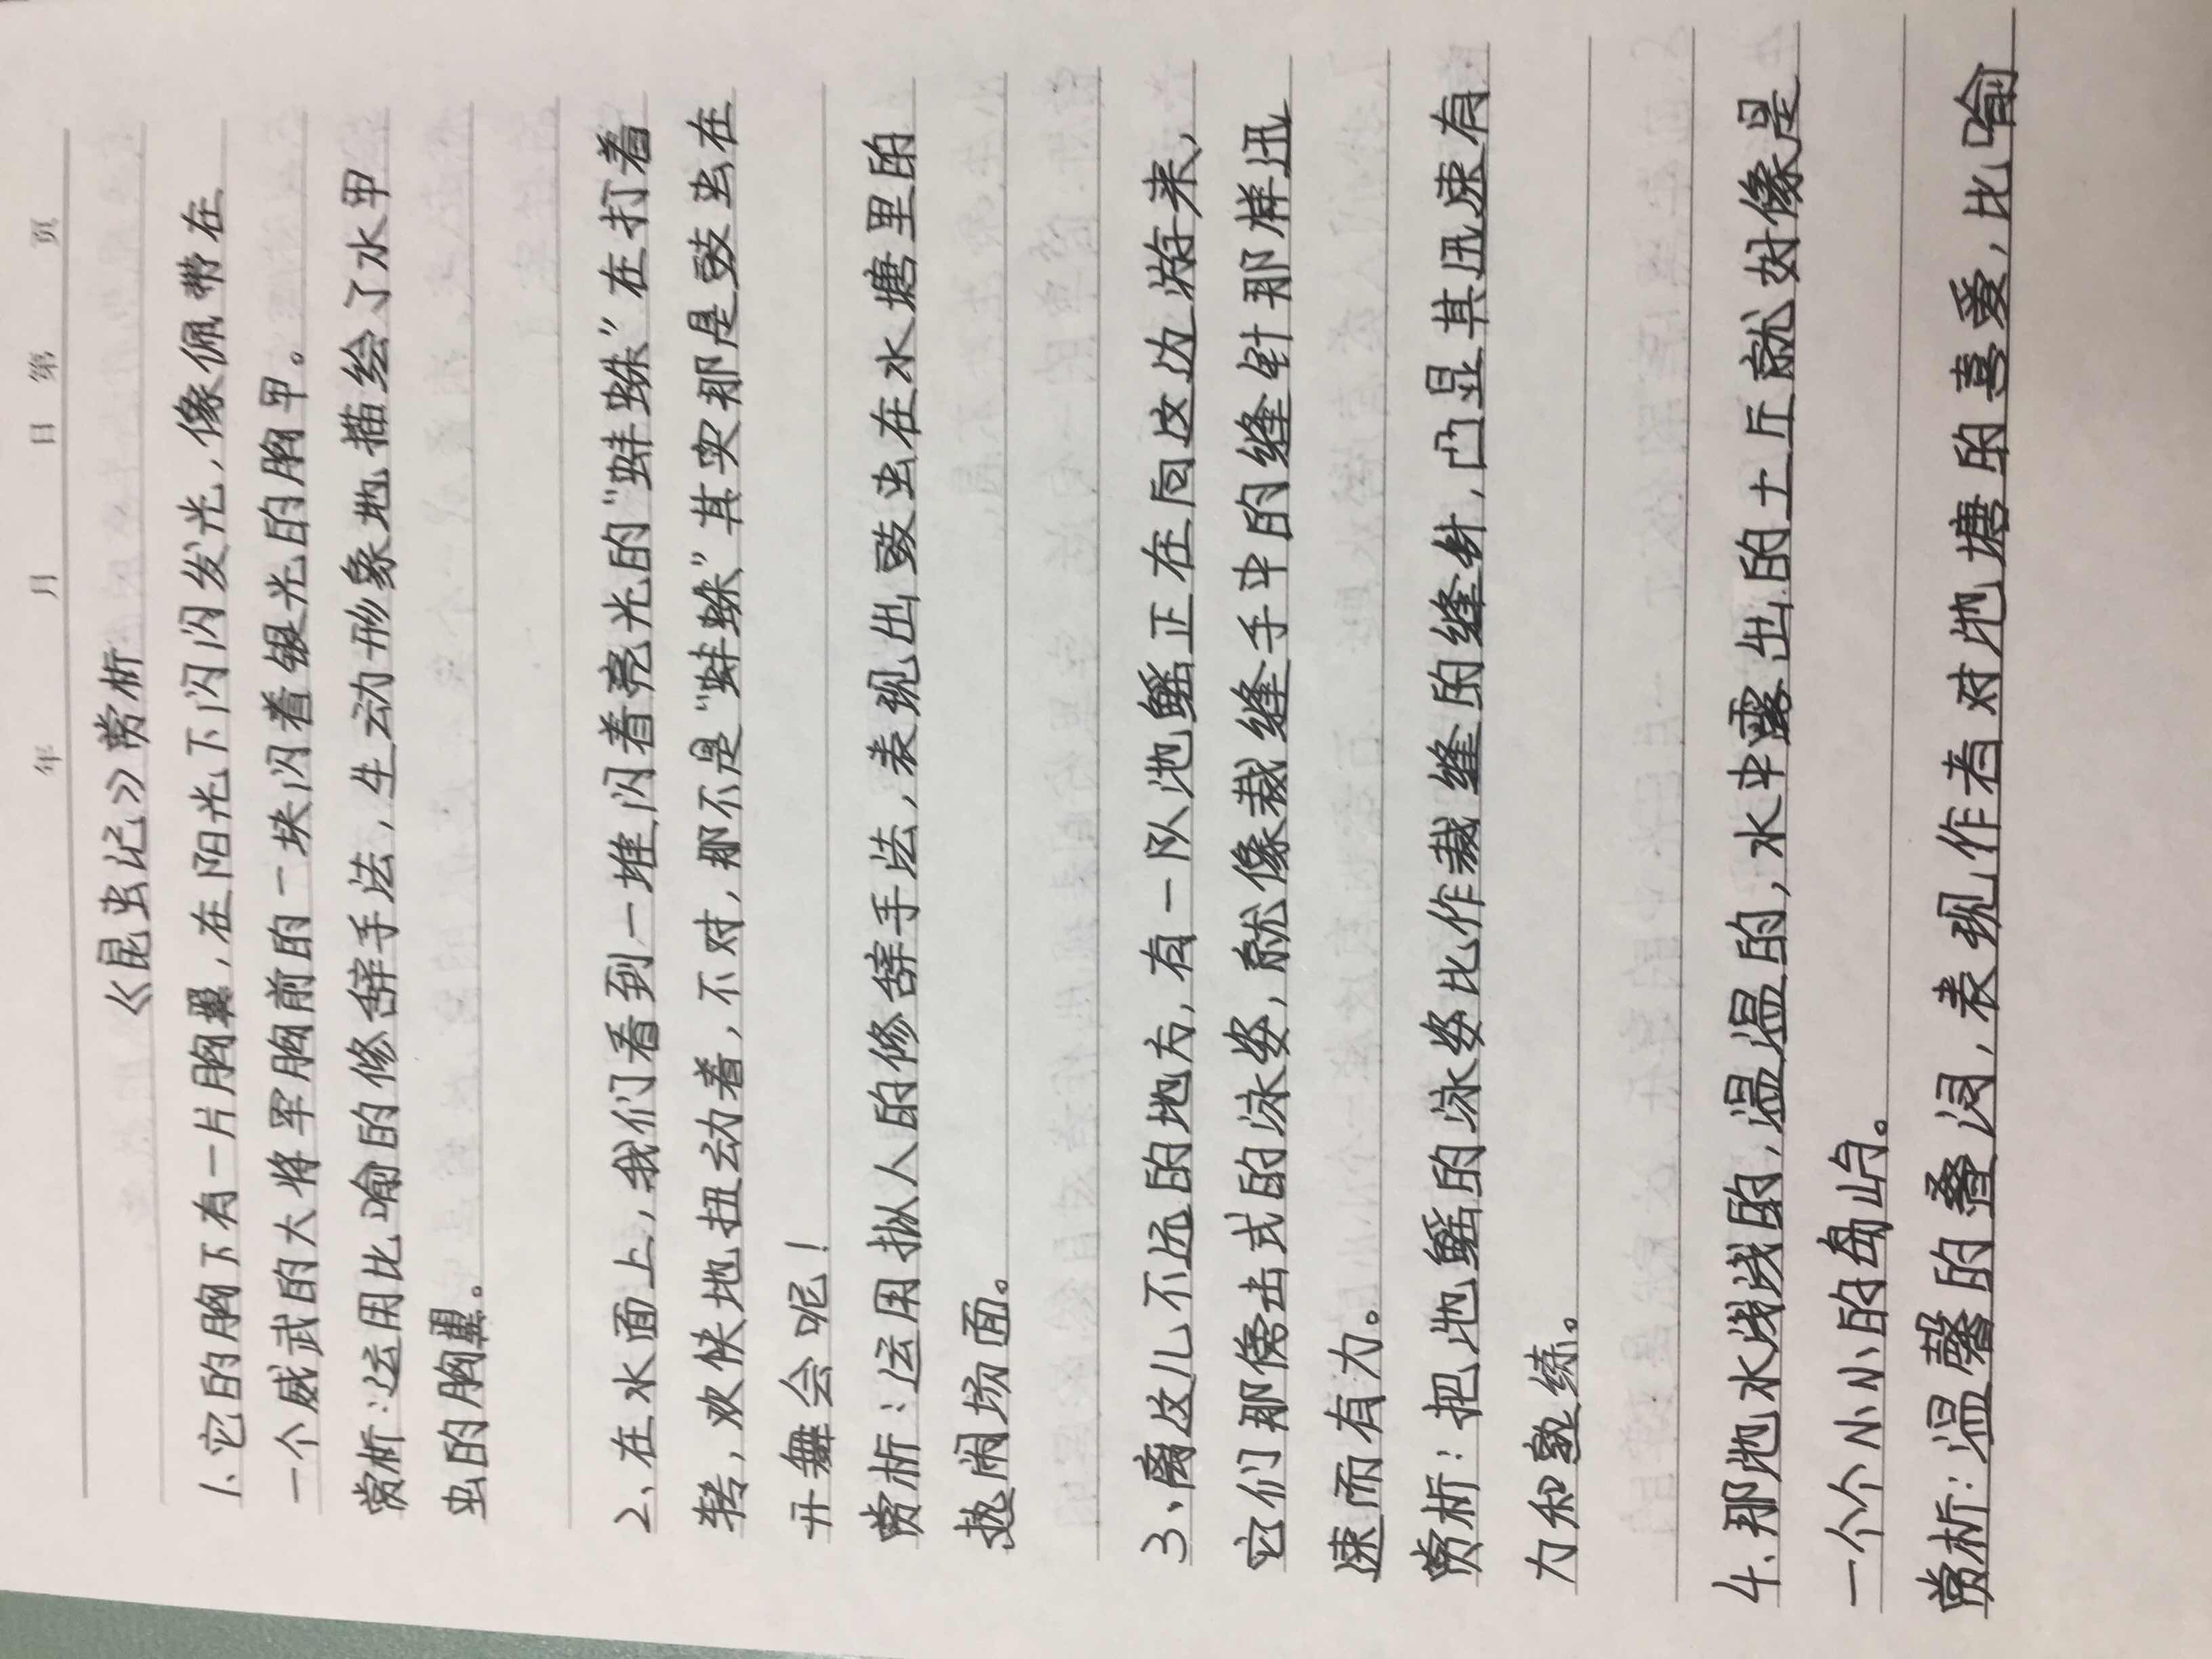 年 月 日 第 页
《昆虫记》赏析
1、它的胸下有一片胸翼，在阳光下闪闪发光，像佩带在
一个威武的大将军胸前的一块闪着银光的胸甲。
赏析：运用比喻的修辞手法，生动形象地描绘了水甲
虫的胸翼。
2、在水面上，我们看到一堆闪着亮光的“蚌蛛”在打着
转，欢快地扭动着，不对，那不是“蚌蛛”其实那是豉虫在
开舞会呢！
赏析：运用拟人的修辞手法，表现出豉虫在水塘里的
热闹场面。
3、离这儿不远的地方，有一队池鳐正在向这边游来，
它们那傍击式的泳姿，就像裁缝手中的缝针那样迅
速而有力。
赏析：把池鳐的泳姿比作裁缝的缝针，凸显其迅速有
力和熟练。
4、那池水浅浅的，温温的，水中露出的土丘就好像是
一个个小小的岛屿。
赏析：温馨的叠词，表现作者对池塘的喜爱，比喻